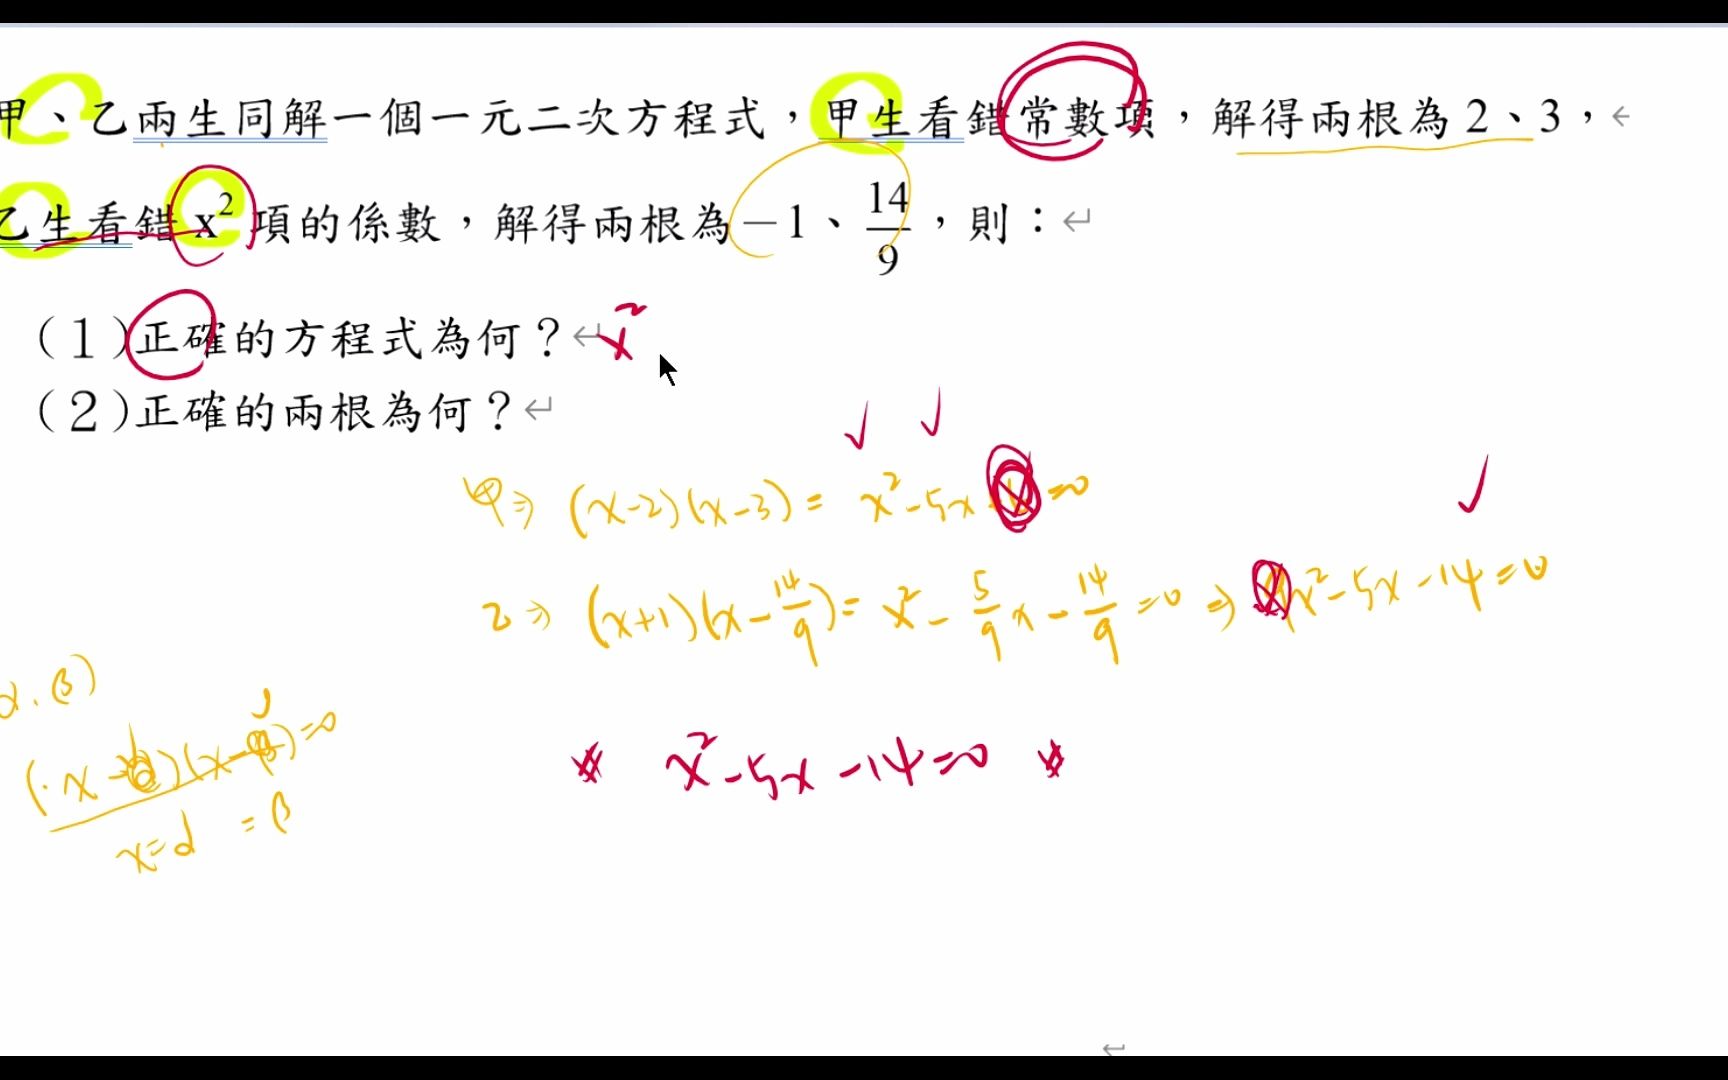 甲、乙兩生同解一個一元二次方程式，甲生看錯常數項，解得兩根為 2、3，
乙生看錯 x² 項的係數，解得兩根為 −1、14/9，則：
(1)正確的方程式為何？ x²
(2)正確的兩根為何？
甲⇒ (x-2)(x-3) = x²-5x =0
乙⇒ (x+1)(x-14/9) = x²-5/9x-14/9=0 ⇒ x²-5x-14=0
α.β)
(x-α)(x-β)=0
x=α =β
* x²-5x-14=0 *